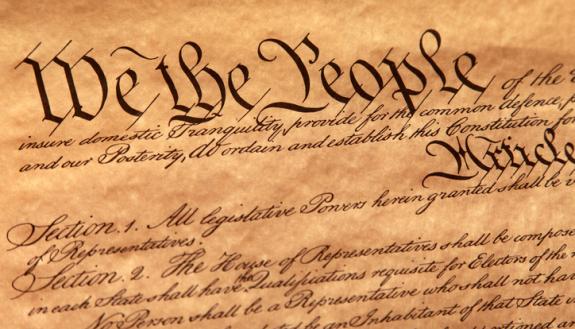 We the People of the
insure domestic Tranquility, provide for the common defence,
and our Posterity, do ordain and establish this Constitution for
Article
Section. 1. All legislative Powers herein granted shall be
of Representatives.
Section. 2. The House of Representatives shall be
in each State shall have Qualifications requisite for Electors of the
No Person shall be a Representative who shall not
be an Inhabitant of that State